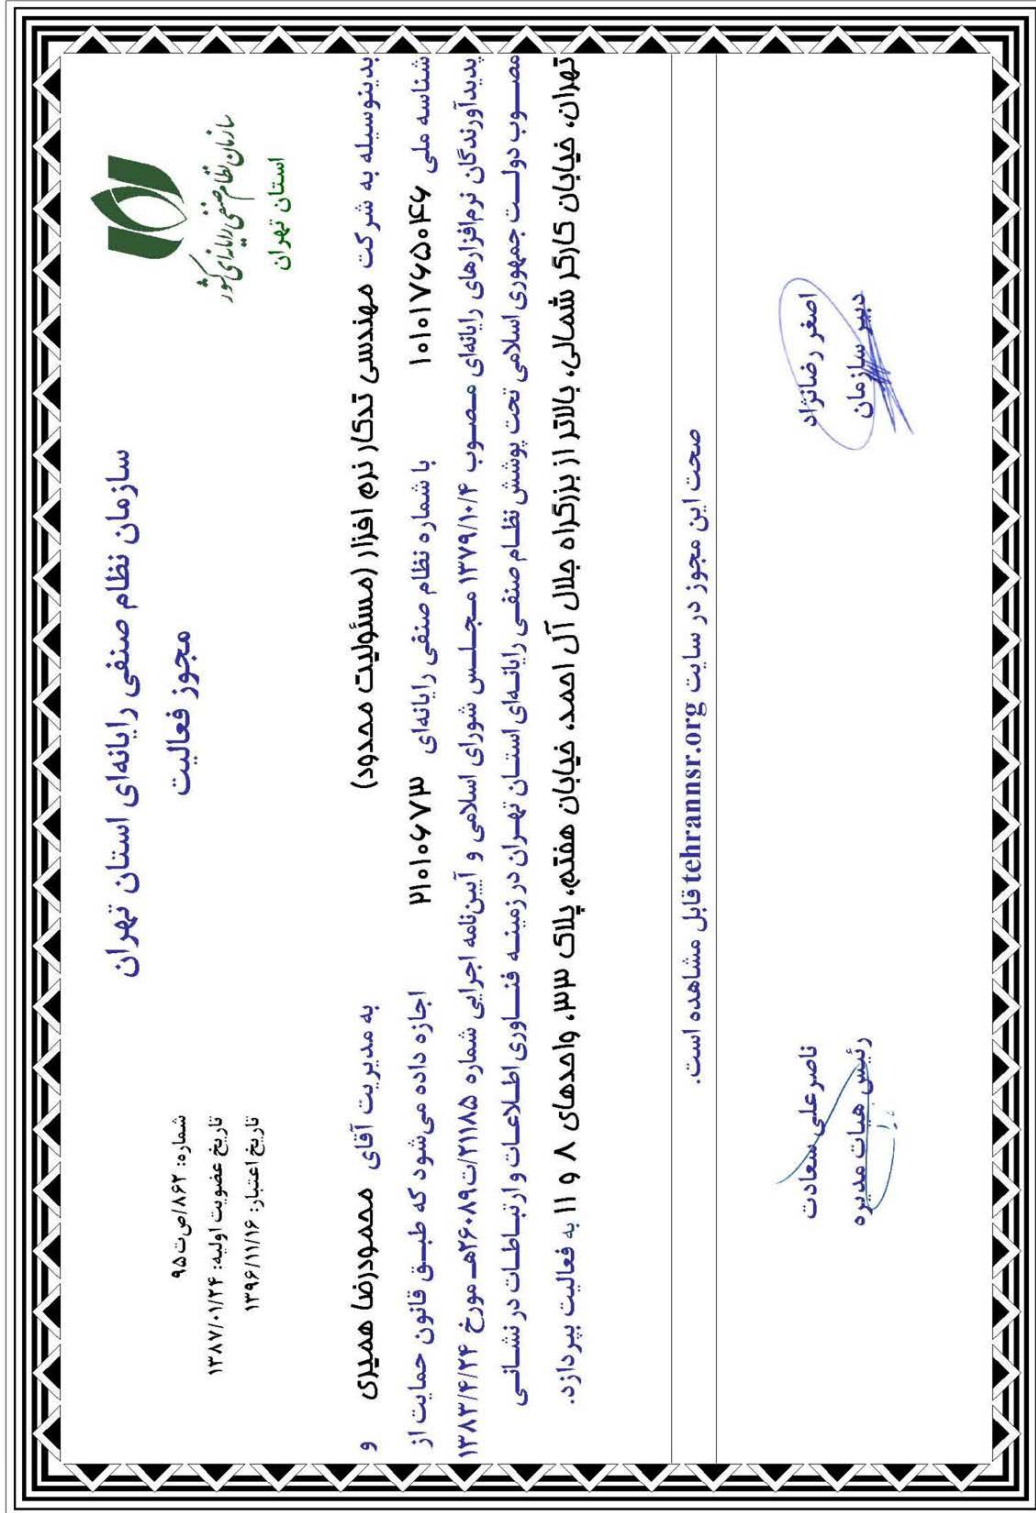 سازمان نظام صنفی رایانه‌ای کشور
استان تهران
سازمان نظام صنفی رایانه‌ای استان تهران
مجوز فعالیت
شماره: ۸۶۲/ص‌ت۹۵
تاریخ عضویت اولیه: ۱۳۸۷/۰۱/۲۴
تاریخ اعتبار: ۱۳۹۶/۱۱/۱۶
بدینوسیله به شرکت مهندسی تدکار نرم افزار (مسئولیت محدود) به مدیریت آقای محمودرضا همیری و
شناسه ملی ۱۰۱۰۱۷۶۵۰۴۶ با شماره نظام صنفی رایانه‌ای ۲۱۰۱۰۶۷۳ اجازه داده می‌شود که طبق قانون حمایت از
پدیدآورندگان نرم‌افزارهای رایانه‌ای مصوب ۱۳۷۹/۱۰/۴ مجلس شورای اسلامی و آیین‌نامه اجرایی شماره ۲۱۱۸۵/ت۲۶۰۸۹هـ مورخ ۱۳۸۳/۴/۲۴
مصوب دولت جمهوری اسلامی تحت پوشش نظام صنفی رایانه‌ای استان تهران در زمینه فناوری اطلاعات و ارتباطات در نشانی
تهران، خیابان کارگر شمالی، بالاتر از بزرگراه جلال آل احمد، خیابان هفتم، پلاک ۳۳، واحدهای ۸ و ۱۱ به فعالیت بپردازد.
صحت این مجوز در سایت tehrannsr.org قابل مشاهده است.
اصغر رضانژاد
دبیر سازمان
ناصرعلی سعادت
رئیس هیات مدیره